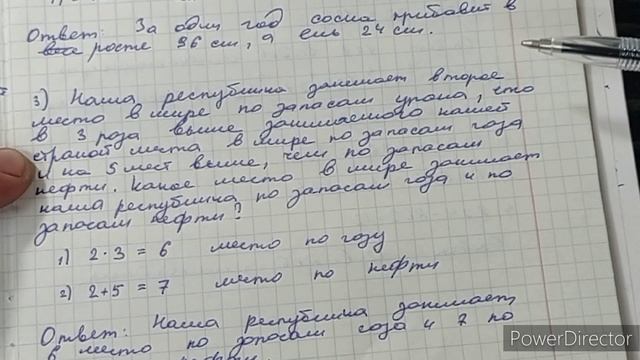 Ответ: За один год сосна прибавит в
росте 36 см, а ель 24 см.
3) Наша республика занимает второе
место в мире по запасам урана, что
в 3 раза выше занимаемого нашей
страной места в мире по запасам газа
и на 5 мест выше, чем по запасам
нефти. Какое место в мире занимает
наша республика по запасам газа и по
запасам нефти?
1) 2·3 = 6 место по газу
2) 2+5 = 7 место по нефти
Ответ: Наша республика занимает
6 место по запасам газа и 7 по
PowerDirector